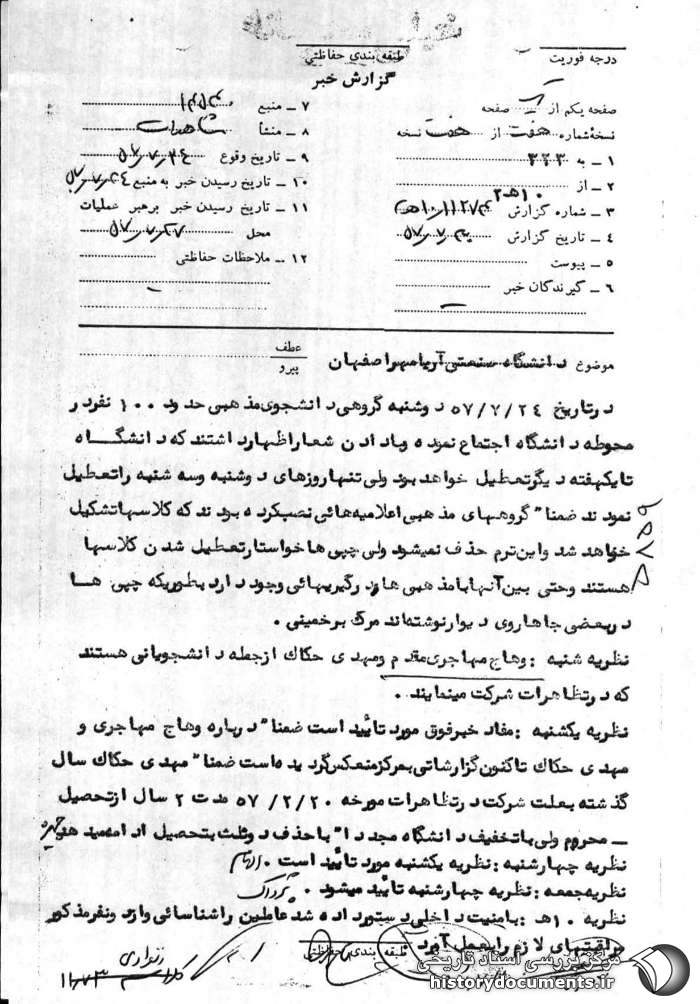 درجه فوریت
طبقه بندی حفاظتی
گزارش خبر
صفحه یکم از یک صفحه
نسخه شماره هفت از هفت نسخه
۱ ـ به ۳۲۳
۲ ـ از ۱۰هـ۲
۳ ـ شماره گزارش
۴ ـ تاریخ گزارش
۵ ـ پیوست
۶ ـ گیرندگان خبر
۷ ـ منبع
۸ ـ منشأ مشاهدات
۹ ـ تاریخ وقوع ۵۷/۷/۲۴
۱۰ ـ تاریخ رسیدن خبر به منبع ۵۷/۷/۲۴
۱۱ ـ تاریخ رسیدن خبر برهبر عملیات
محل ۵۷/۷/۲۷
۱۲ ـ ملاحظات حفاظتی
موضوع دانشگاه صنعتی آریامهر اصفهان
عطف
پیرو
در تاریخ ۵۷/۷/۲۴ دوشنبه گروهی دانشجوی مذهبی حدود ۱۰۰ نفر در
محوطه دانشگاه اجتماع نموده و با دادن شعار اظهار داشتند که دانشگاه
تا یکهفته دیگر تعطیل خواهد بود ولی تنها روزهای دوشنبه و سه شنبه را تعطیل
نمودند ضمنا" گروههای مذهبی اعلامیه هائی نصب کرده بودند که کلاسها تشکیل
خواهد شد و این ترم حذف نمیشود ولی چپی ها خواستار تعطیل شدن کلاسها
هستند و حتی بین آنها با مذهبی ها درگیریهائی وجود دارد بطوریکه چپی ها
در بعضی جاها روی دیوار نوشته‌اند مرگ بر خمینی .
نظریه شنبه : وهاج مهاجری مقدم و مهدی حکاک از جمله دانشجویانی هستند
که در تظاهرات شرکت مینمایند .
نظریه یکشنبه : مفاد خبر فوق مورد تائید است ضمنا" درباره وهاج مهاجری و
مهدی حکاک تاکنون گزارشاتی بمرکز منعکس گردیده است ضمنا" مهدی حکاک سال
گذشته بعلت شرکت در تظاهرات مورخه ۵۷/۲/۲۰ مدت ۲ سال از تحصیل
ـ محروم ولی با تخفیف دانشگاه مجددا" با حذف دو ثلث بتحصیل ادامه میدهد
نظریه چهارشنبه : نظریه یکشنبه مورد تائید است .
نظریه جمعه : نظریه چهارشنبه تائید میشود .
نظریه ۱۰هـ : بامنیت داخلی دستور داده شد عاملین را شناسائی و از دو نفر مذکور
مراقبتهای لازم را بعمل آورد
طبقه بندی حفاظتی
مرکز بررسی اسناد تاریخی
historydocuments.ir